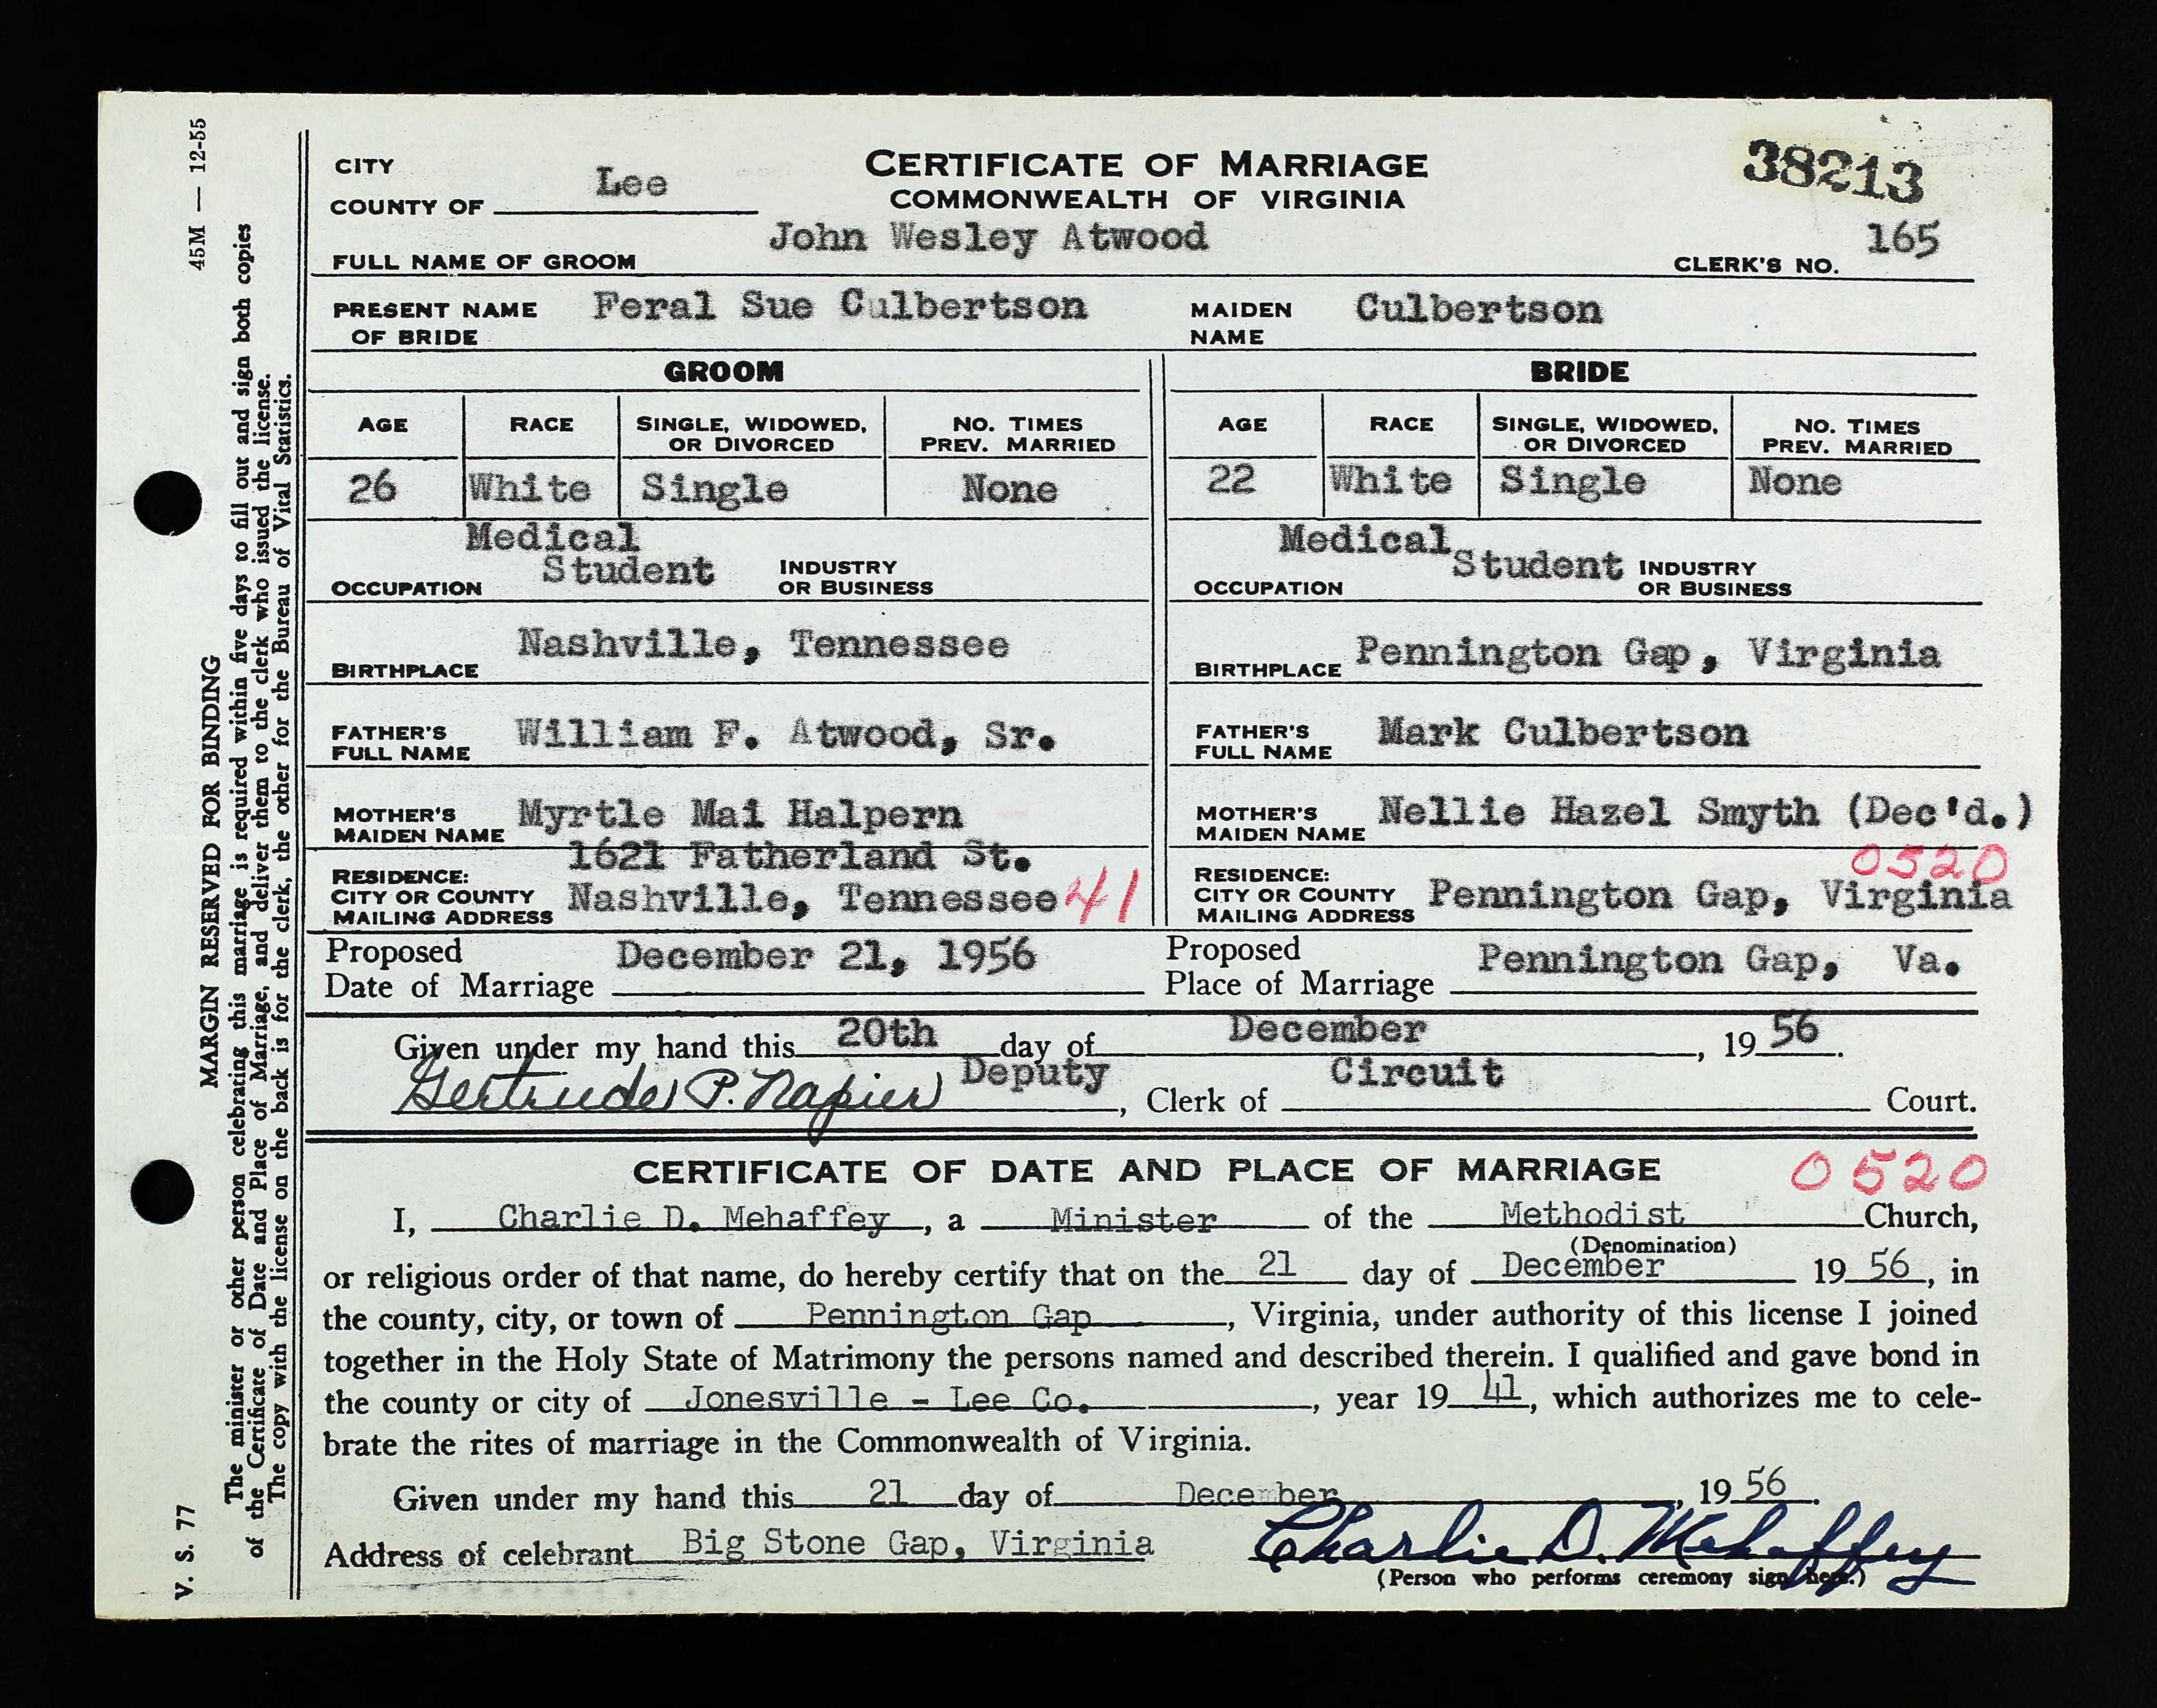 45M — 12-55
MARGIN RESERVED FOR BINDING
The minister or other person celebrating this marriage is required within five days to fill out and sign both copies
of the Certificate of Date and Place of Marriage, and deliver them to the clerk who issued the license.
The copy with the license on the back is for the clerk, the other for the Bureau of Vital Statistics.
V. S. 77
CERTIFICATE OF MARRIAGE
COMMONWEALTH OF VIRGINIA
38213
CITY
COUNTY OF Lee
FULL NAME OF GROOM John Wesley Atwood CLERK'S NO. 165
PRESENT NAME OF BRIDE Feral Sue Culbertson MAIDEN NAME Culbertson
GROOM BRIDE
AGE RACE SINGLE, WIDOWED, OR DIVORCED NO. TIMES PREV. MARRIED AGE RACE SINGLE, WIDOWED, OR DIVORCED NO. TIMES PREV. MARRIED
26 White Single None 22 White Single None
OCCUPATION Medical Student INDUSTRY OR BUSINESS OCCUPATION Medical Student INDUSTRY OR BUSINESS
BIRTHPLACE Nashville, Tennessee BIRTHPLACE Pennington Gap, Virginia
FATHER'S FULL NAME William F. Atwood, Sr. FATHER'S FULL NAME Mark Culbertson
MOTHER'S MAIDEN NAME Myrtle Mai Halpern MOTHER'S MAIDEN NAME Nellie Hazel Smyth (Dec'd.)
RESIDENCE: CITY OR COUNTY MAILING ADDRESS 1621 Fatherland St. Nashville, Tennessee 41 RESIDENCE: CITY OR COUNTY MAILING ADDRESS Pennington Gap, Virginia 0520
Proposed Date of Marriage December 21, 1956 Proposed Place of Marriage Pennington Gap, Va.
Given under my hand this 20th day of December, 19 56.
Gertrude P. Napier Deputy, Clerk of Circuit Court.
CERTIFICATE OF DATE AND PLACE OF MARRIAGE 0520
I, Charlie D. Mehaffey, a Minister of the Methodist Church,
(Denomination)
or religious order of that name, do hereby certify that on the 21 day of December 19 56, in
the county, city, or town of Pennington Gap, Virginia, under authority of this license I joined
together in the Holy State of Matrimony the persons named and described therein. I qualified and gave bond in
the county or city of Jonesville - Lee Co., year 19 41, which authorizes me to cele-
brate the rites of marriage in the Commonwealth of Virginia.
Given under my hand this 21 day of December, 19 56.
Address of celebrant Big Stone Gap, Virginia Charlie D. Mehaffey
(Person who performs ceremony sign here.)